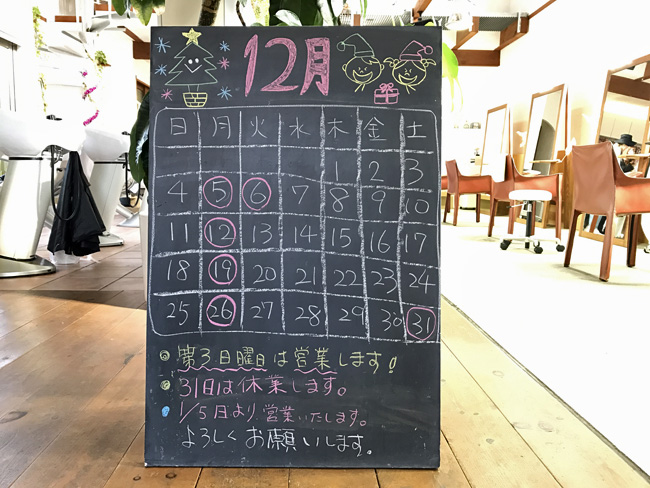 12月
日 月 火 水 木 金 土
1 2 3
4 5 6 7 8 9 10
11 12 13 14 15 16 17
18 19 20 21 22 23 24
25 26 27 28 29 30 31
第3日曜日は営業します!
31日は休業します。
1/5日より営業いたします。
よろしくお願いします。